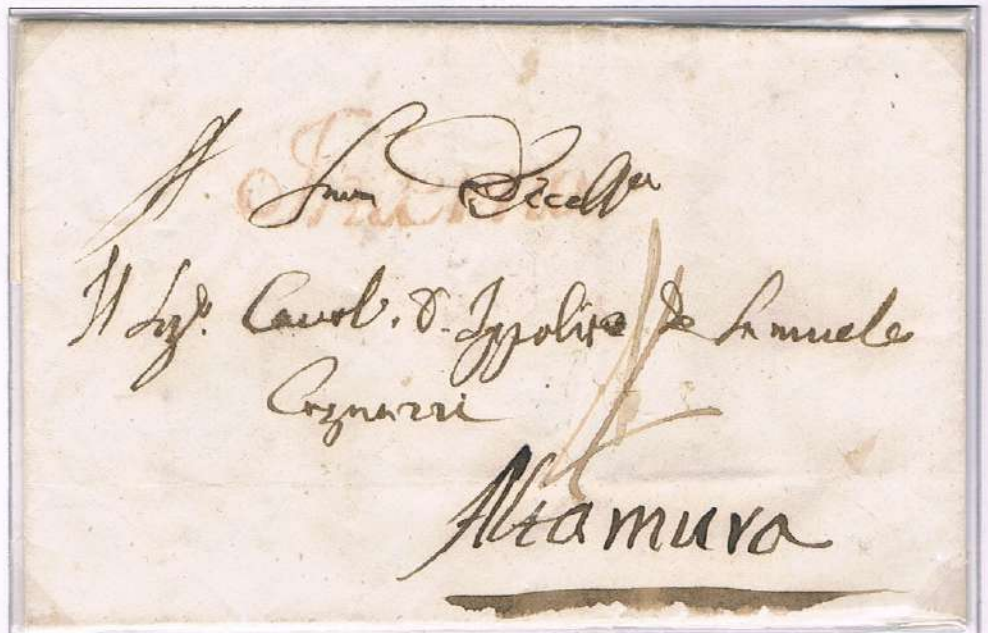 A Sua Eccellza
Il Sigr. Caval. D. Ippolito De Samuele
Cagnazzi
Altamura